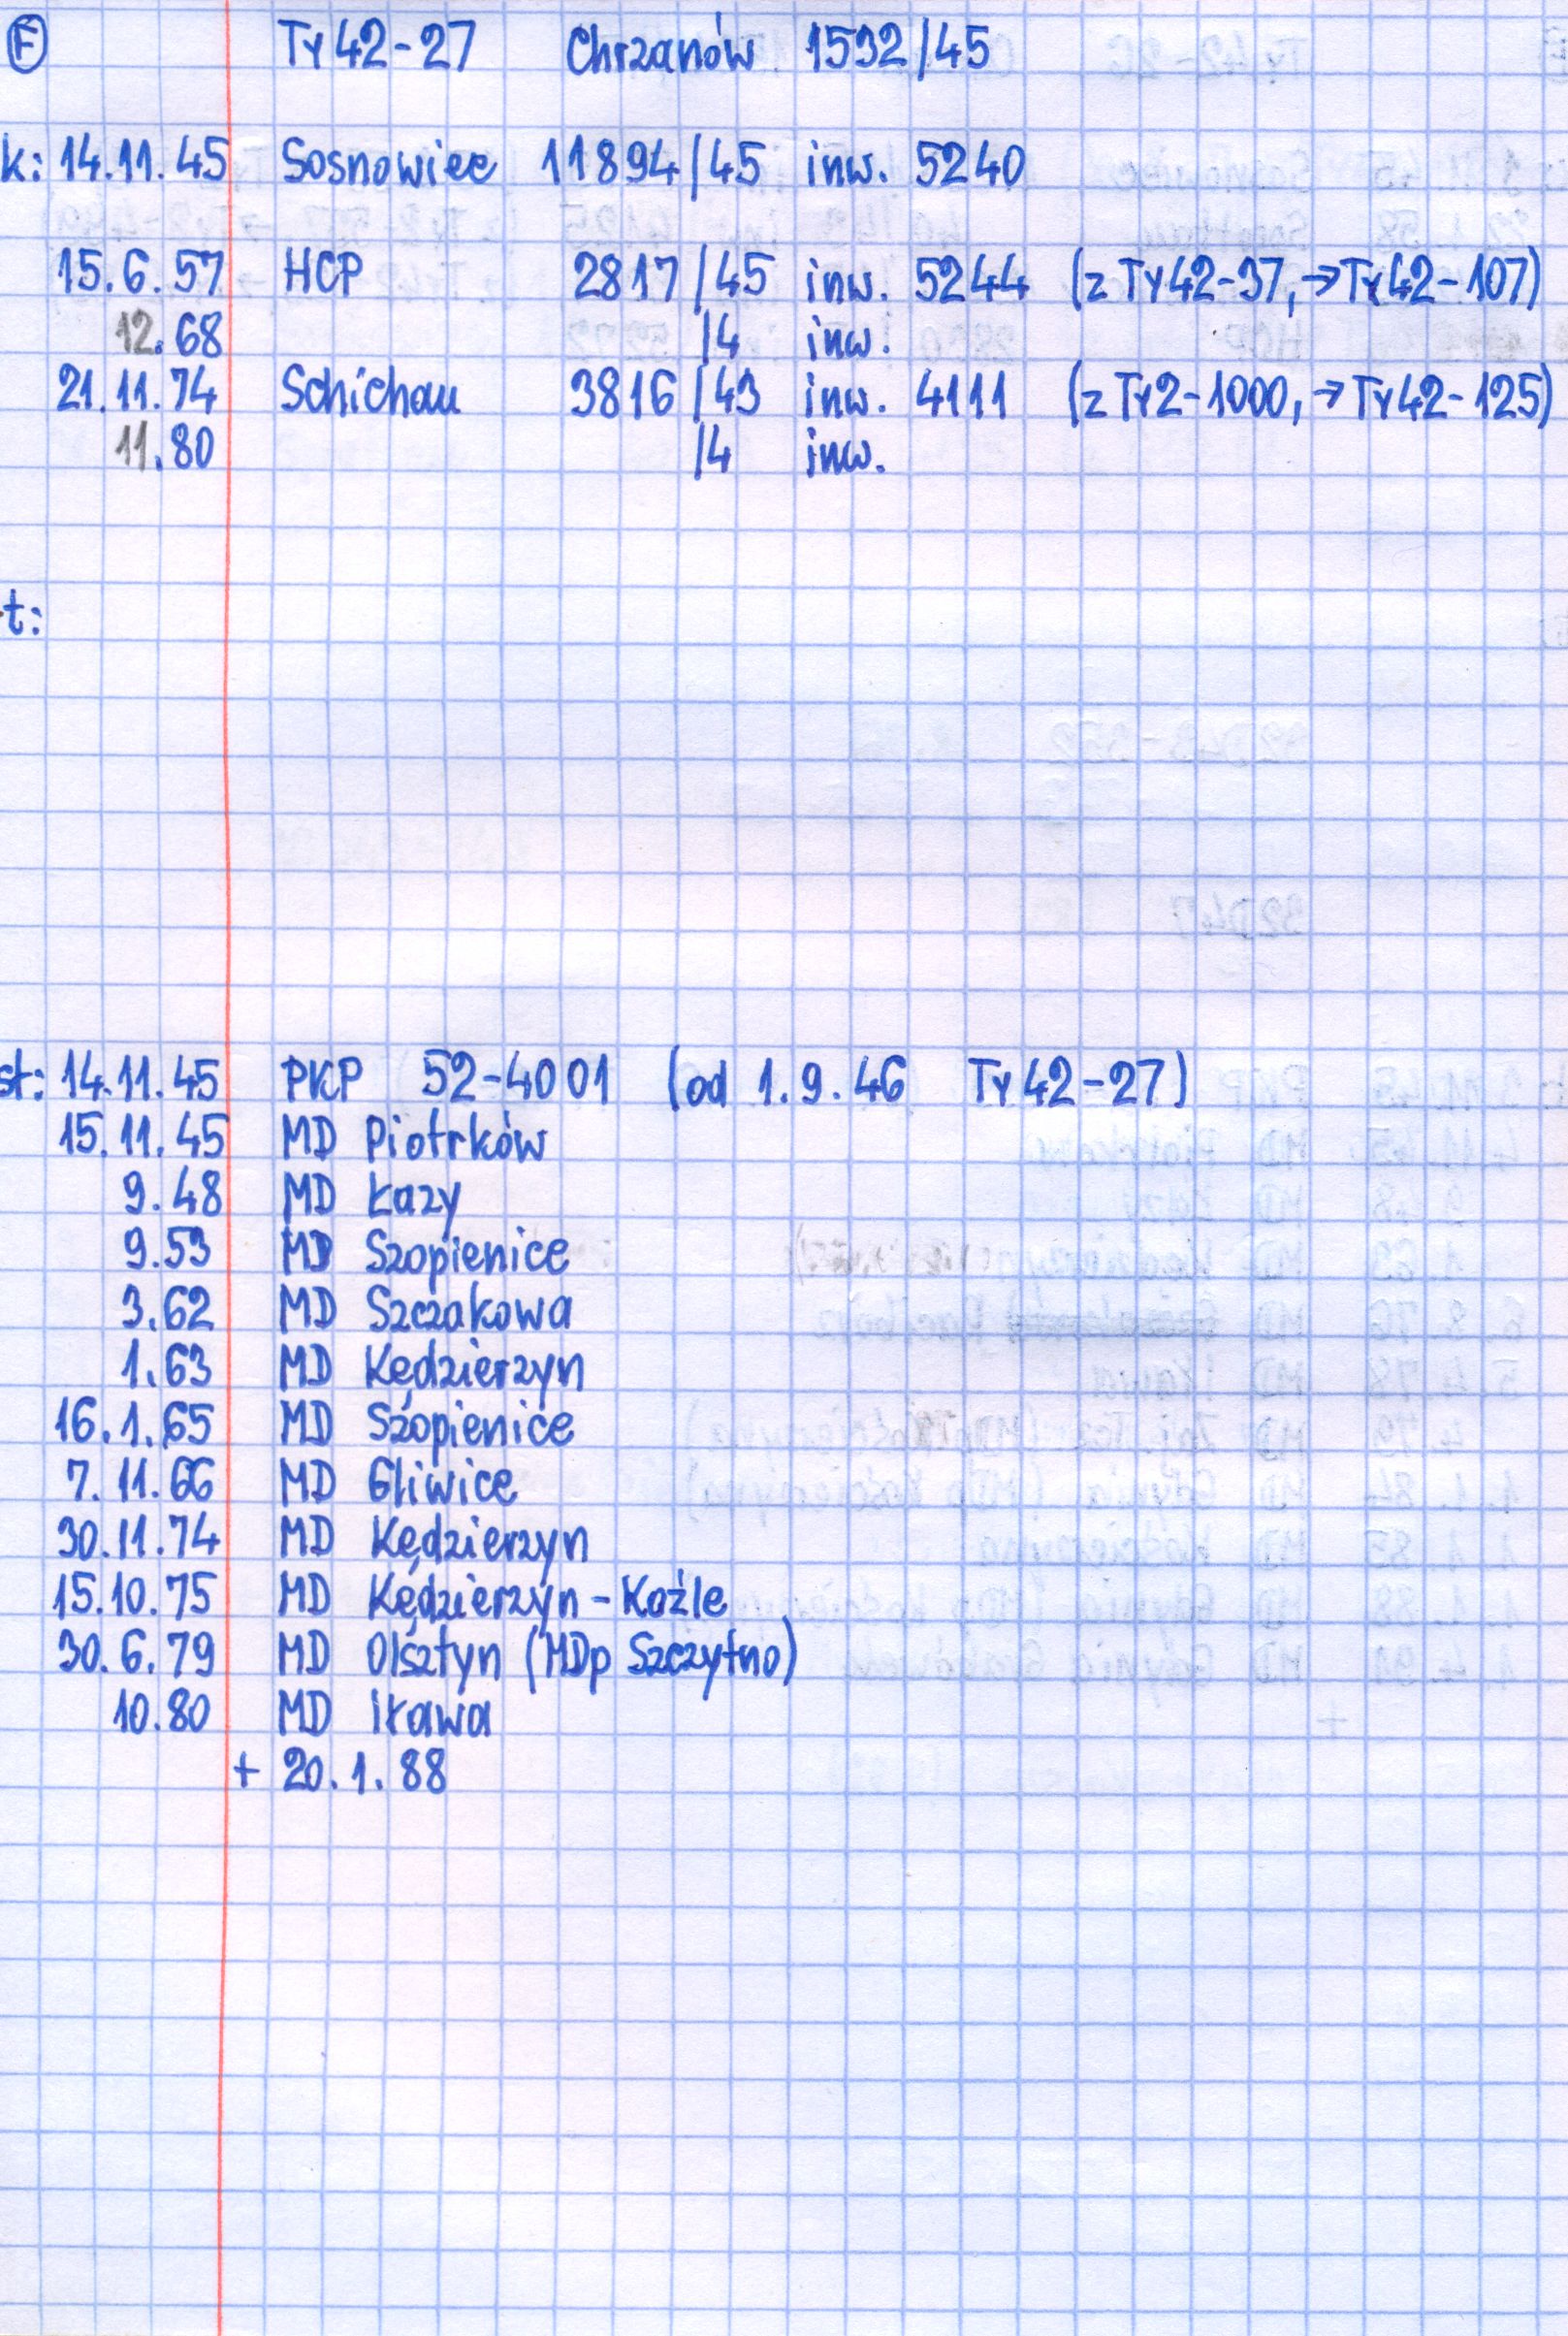 F Ty42-27 Chrzanów 1532/45
k: 14.11.45 Sosnowiec 11894/45 inw. 5240
15.6.57 HCP 2817/45 inw. 5244 (z Ty42-37, →Ty42-107)
12.68 /4 inw.
21.11.74 Schichau 3816/43 inw. 4111 (z Ty2-1000, →Ty42-125)
11.80 /4 inw.
t:
st: 14.11.45 PKP 52-4001 (od 1.9.46 Ty42-27)
15.11.45 MD Piotrków
9.48 MD Łazy
9.53 MD Szopienice
3.62 MD Szczakowa
1.63 MD Kędzierzyn
16.1.65 MD Szopienice
7.11.66 MD Gliwice
30.11.74 MD Kędzierzyn
15.10.75 MD Kędzierzyn-Koźle
30.6.79 MD Olsztyn (MDp Szczytno)
10.80 MD Iława
+ 20.1.88